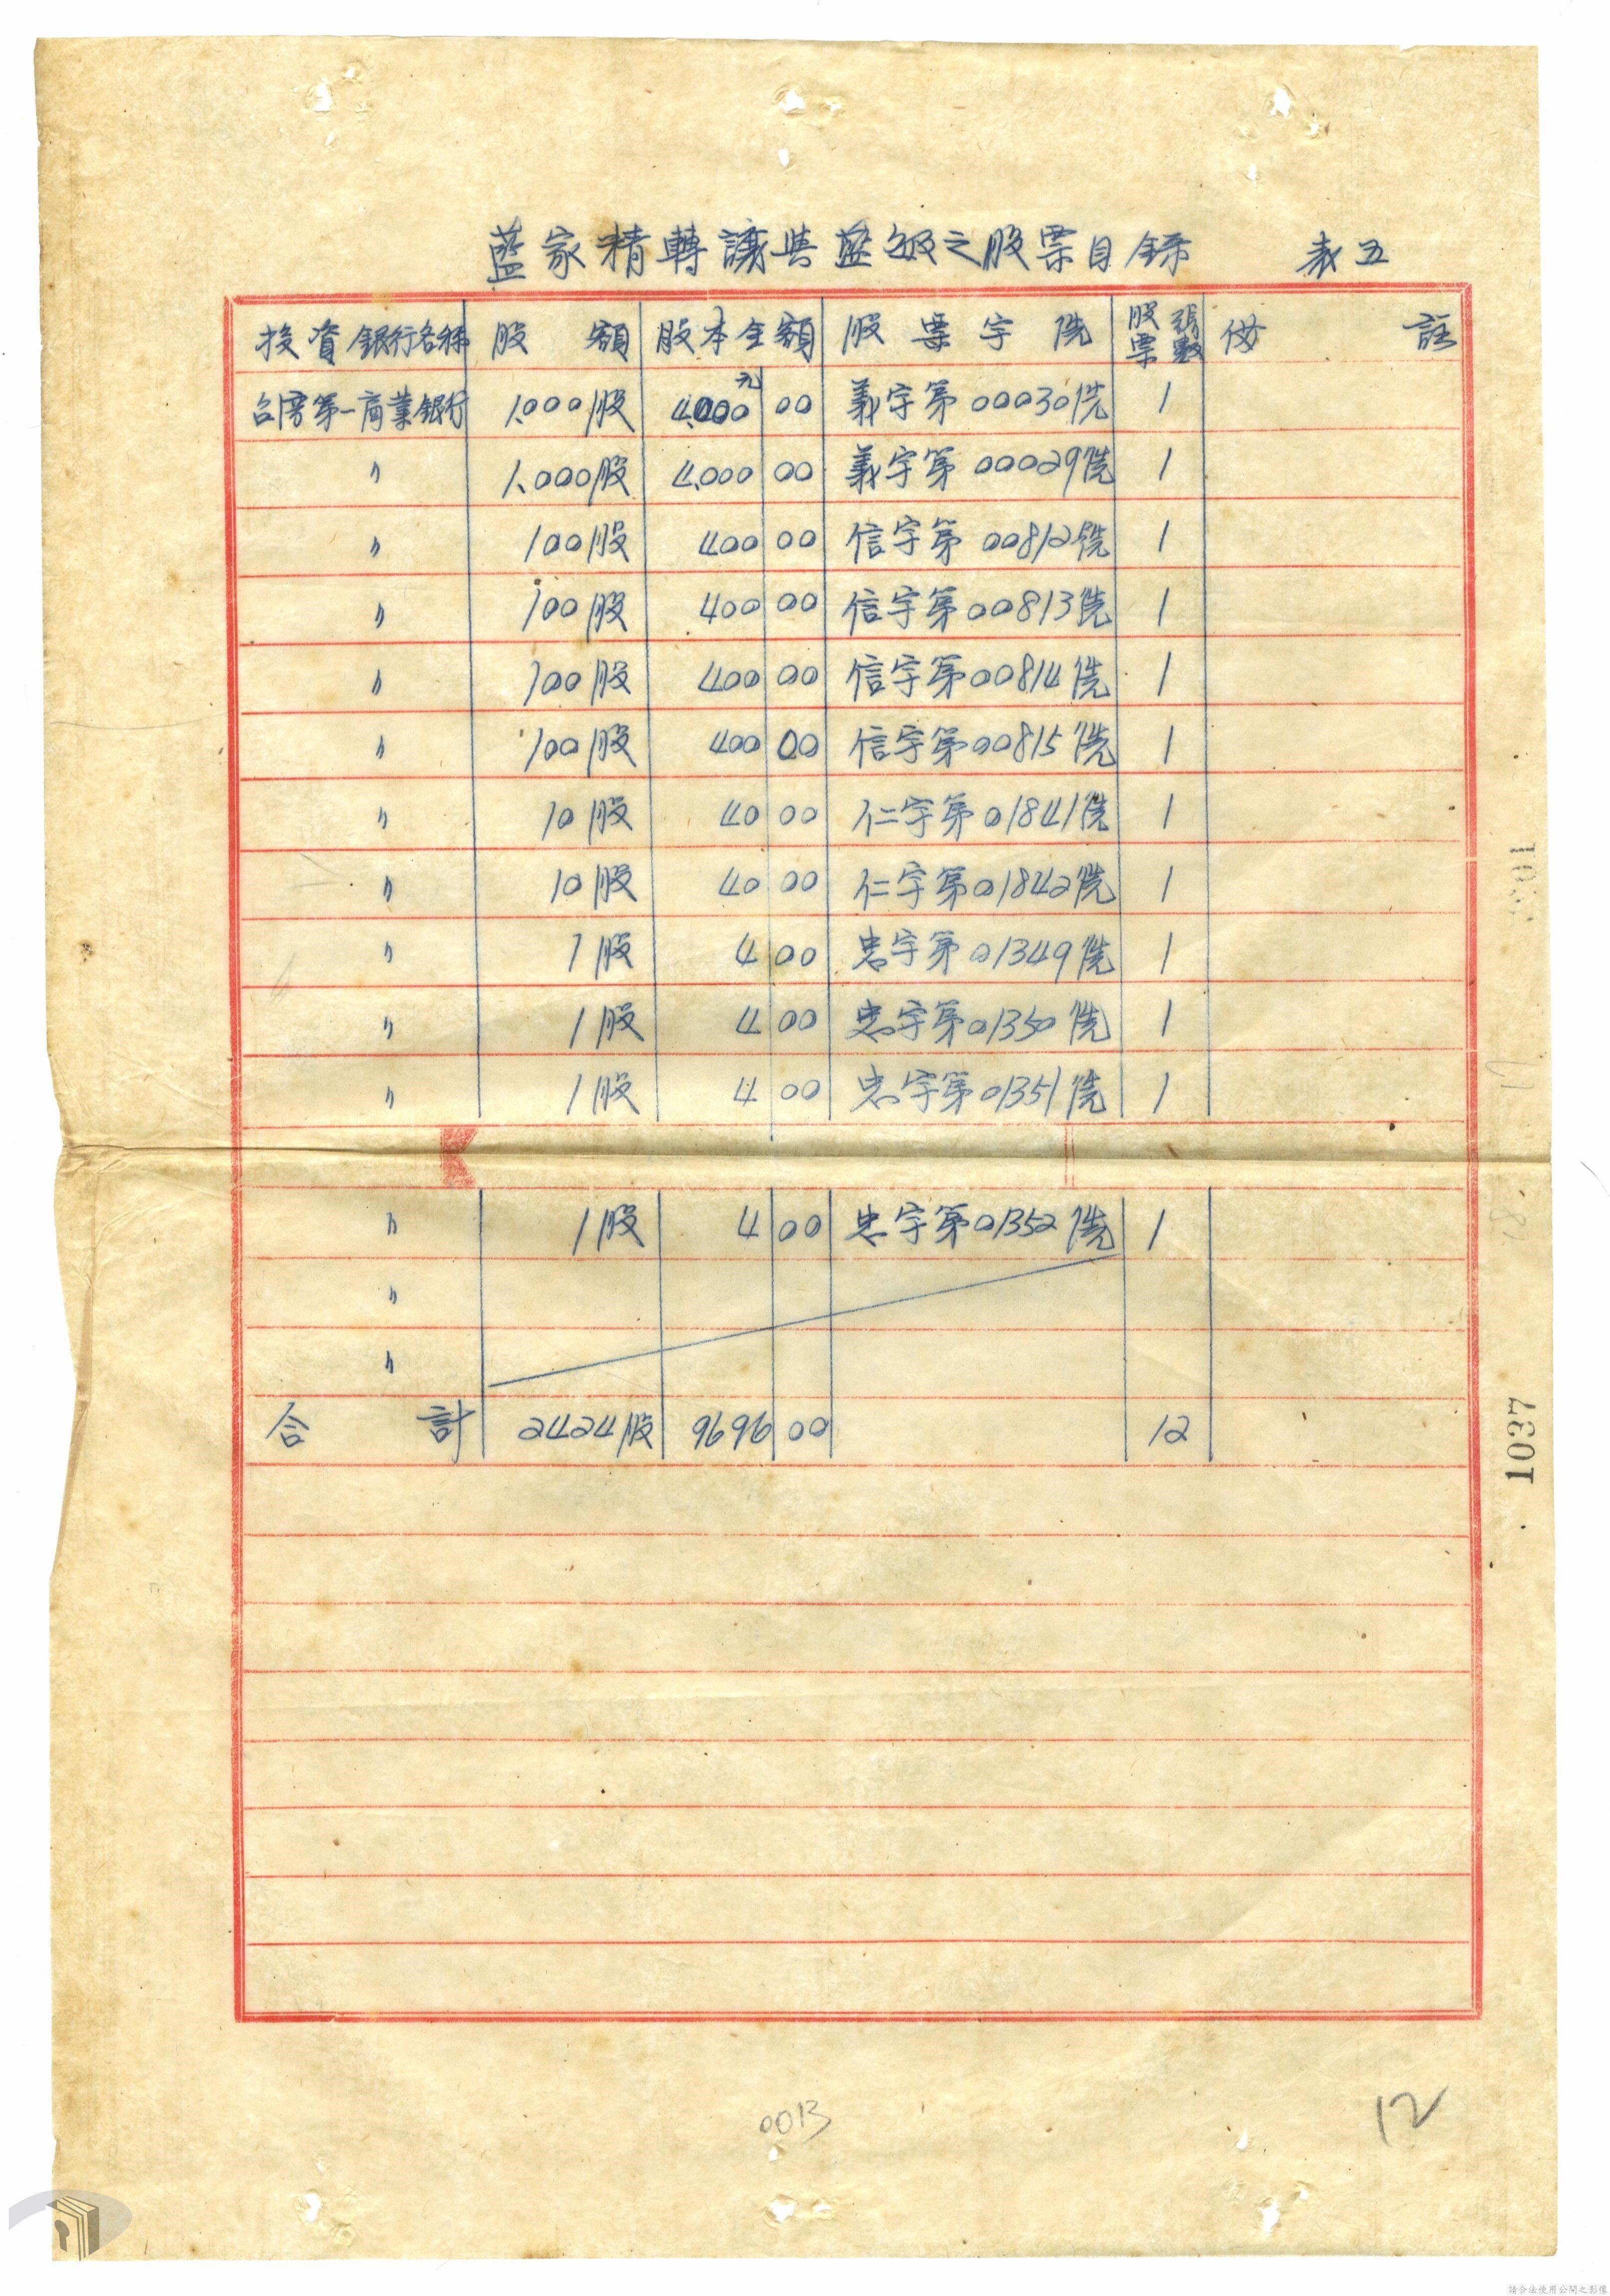 藍家精轉讓與藍敏之股票目錄 表五
投資銀行名稱 股額 股本金額 股票字號 股票張數 備註
台灣第一商業銀行 1,000股 4,000元00 義字第00030號 1
〃 1,000股 4,000 00 義字第00029號 1
〃 100股 400 00 信字第00812號 1
〃 100股 400 00 信字第00813號 1
〃 100股 400 00 信字第00814號 1
〃 100股 400 00 信字第00815號 1
〃 10股 40 00 仁字第01841號 1
〃 10股 40 00 仁字第01842號 1
〃 1股 4 00 忠字第01349號 1
〃 1股 4 00 忠字第01350號 1
〃 1股 4 00 忠字第01351號 1
〃 1股 4 00 忠字第01352號 1
〃
〃
合計 2424股 9696 00 12
1037
0013
12
請合法使用公開之影像